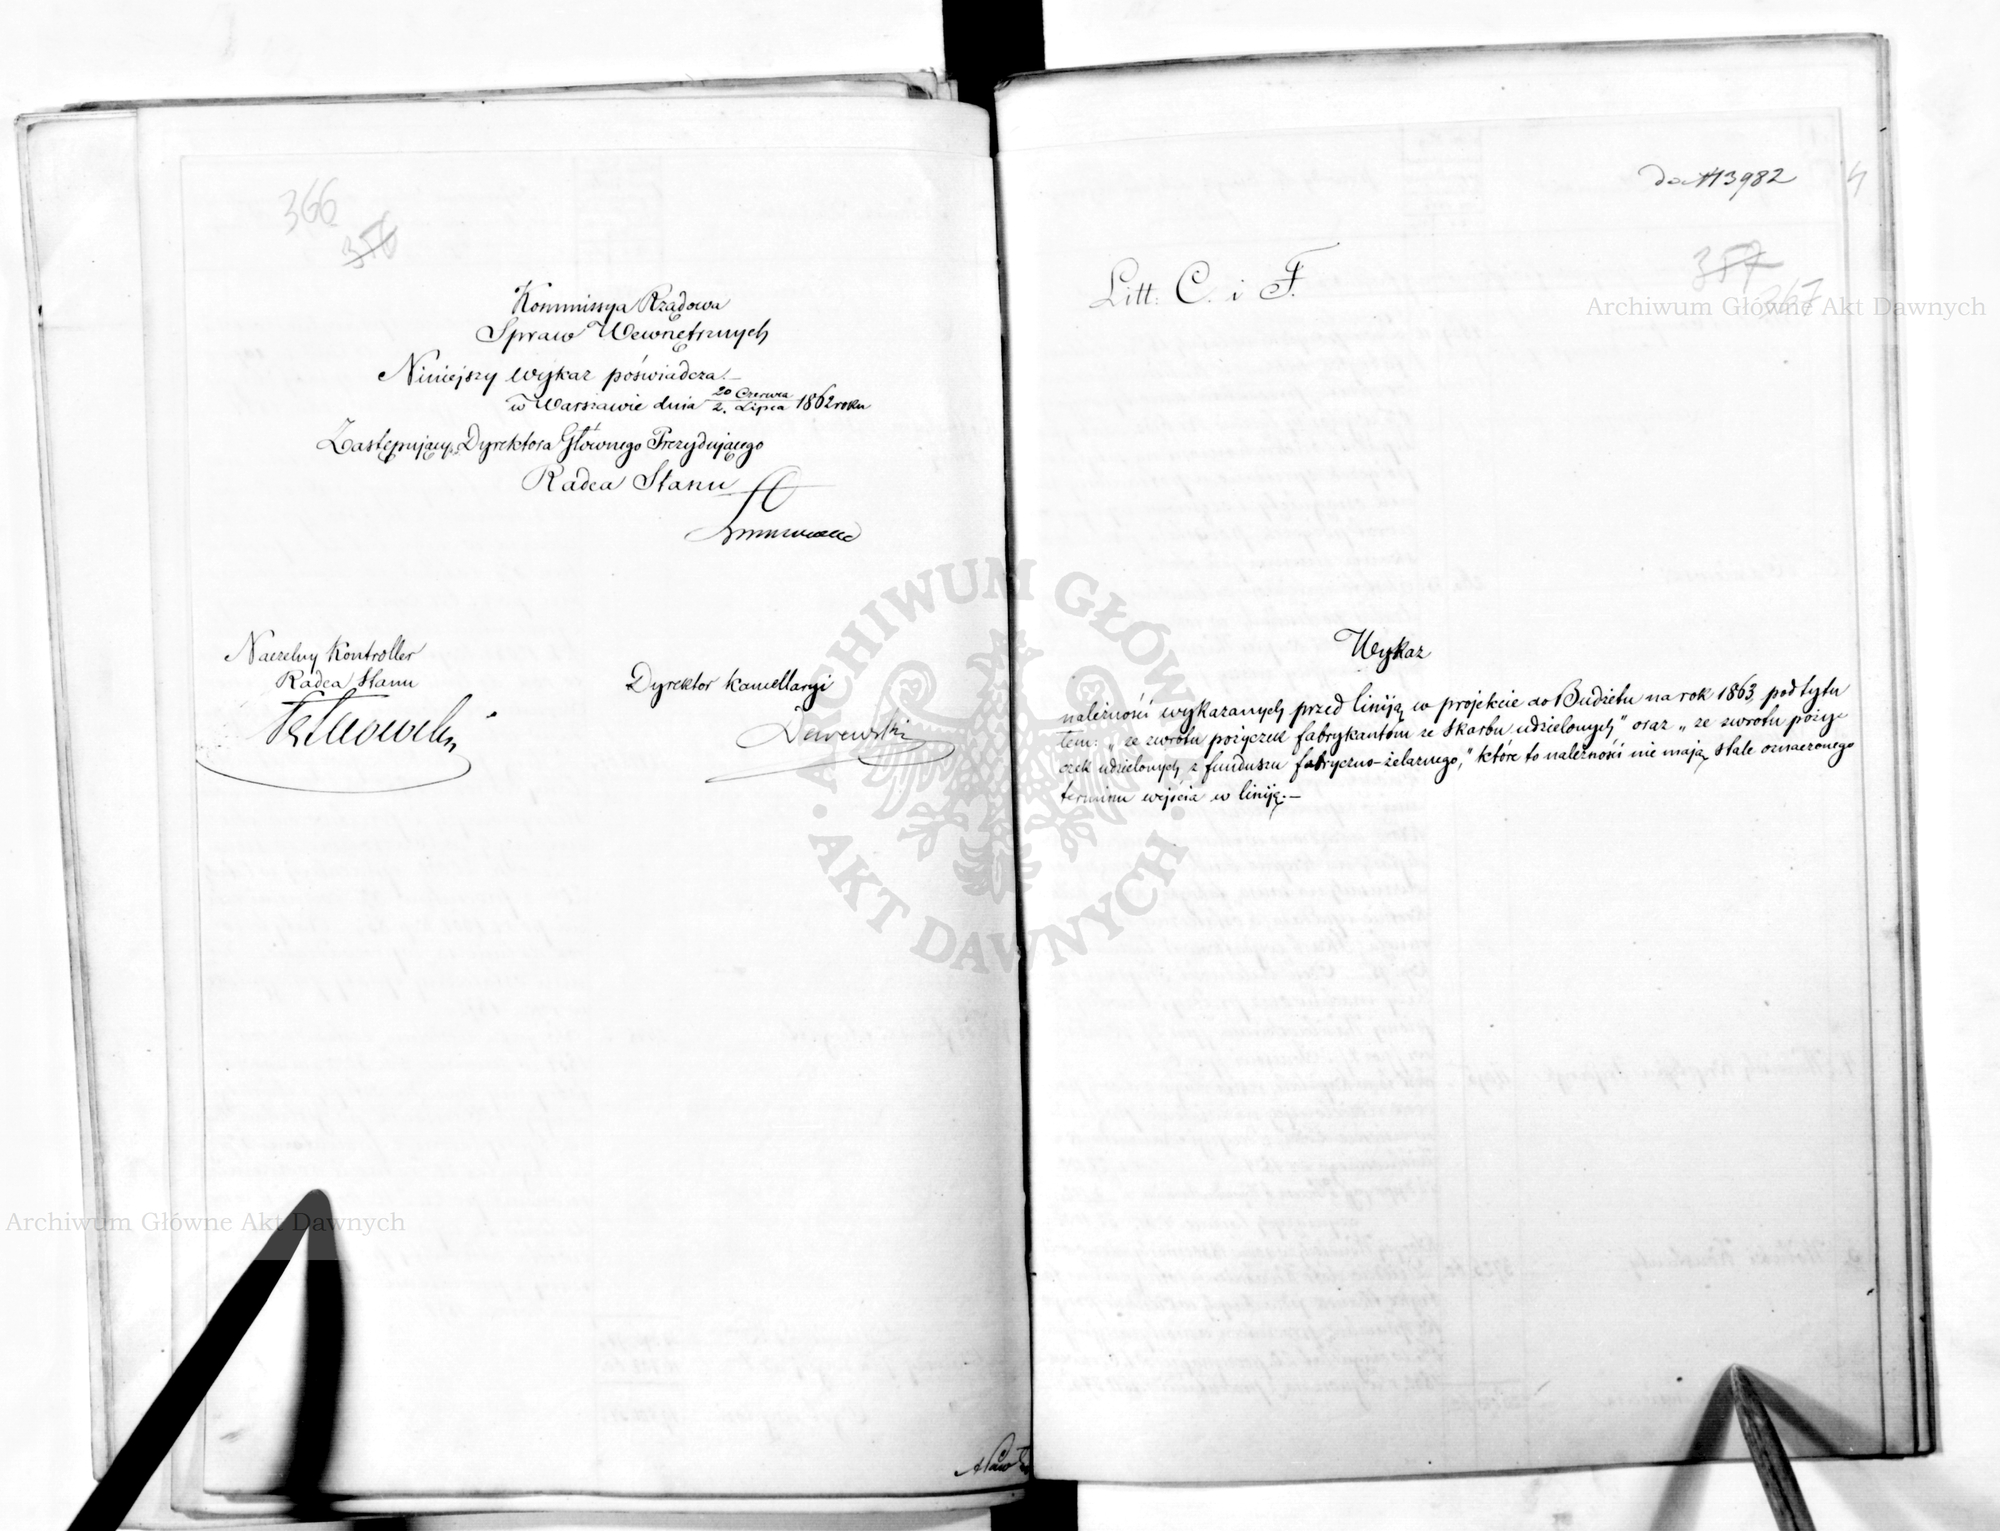 366
356
Kommissya Rządowa
Spraw Wewnętrznych
Niniejszy wykaz poświadcza.—
w Warszawie dnia 20 Czerwca / 2. Lipca 1862 roku
Zastępujący Dyrektora Głównego Prezydującego
Radca Stanu
Naczelny Kontroller
Radca Stanu
Dyrektor Kancellaryi
do N 13982
4
357
367
Litt: C. i F.
Wykaz
należności wykazanych przed liniją w projekcie do Budżetu na rok 1863 pod tytu
łem: „ze zwrotu pożyczek fabrykantom ze Skarbu udzielonych" oraz „ze zwrotu poży=
czek udzielonych z funduszu fabryczno-żelaznego," które to należności nie mają stale oznaczonego
terminu wejścia w liniją.—
Archiwum Główne Akt Dawnych
ARCHIWUM GŁÓWNE
AKT DAWNYCH
Archiwum Główne Akt Dawnych